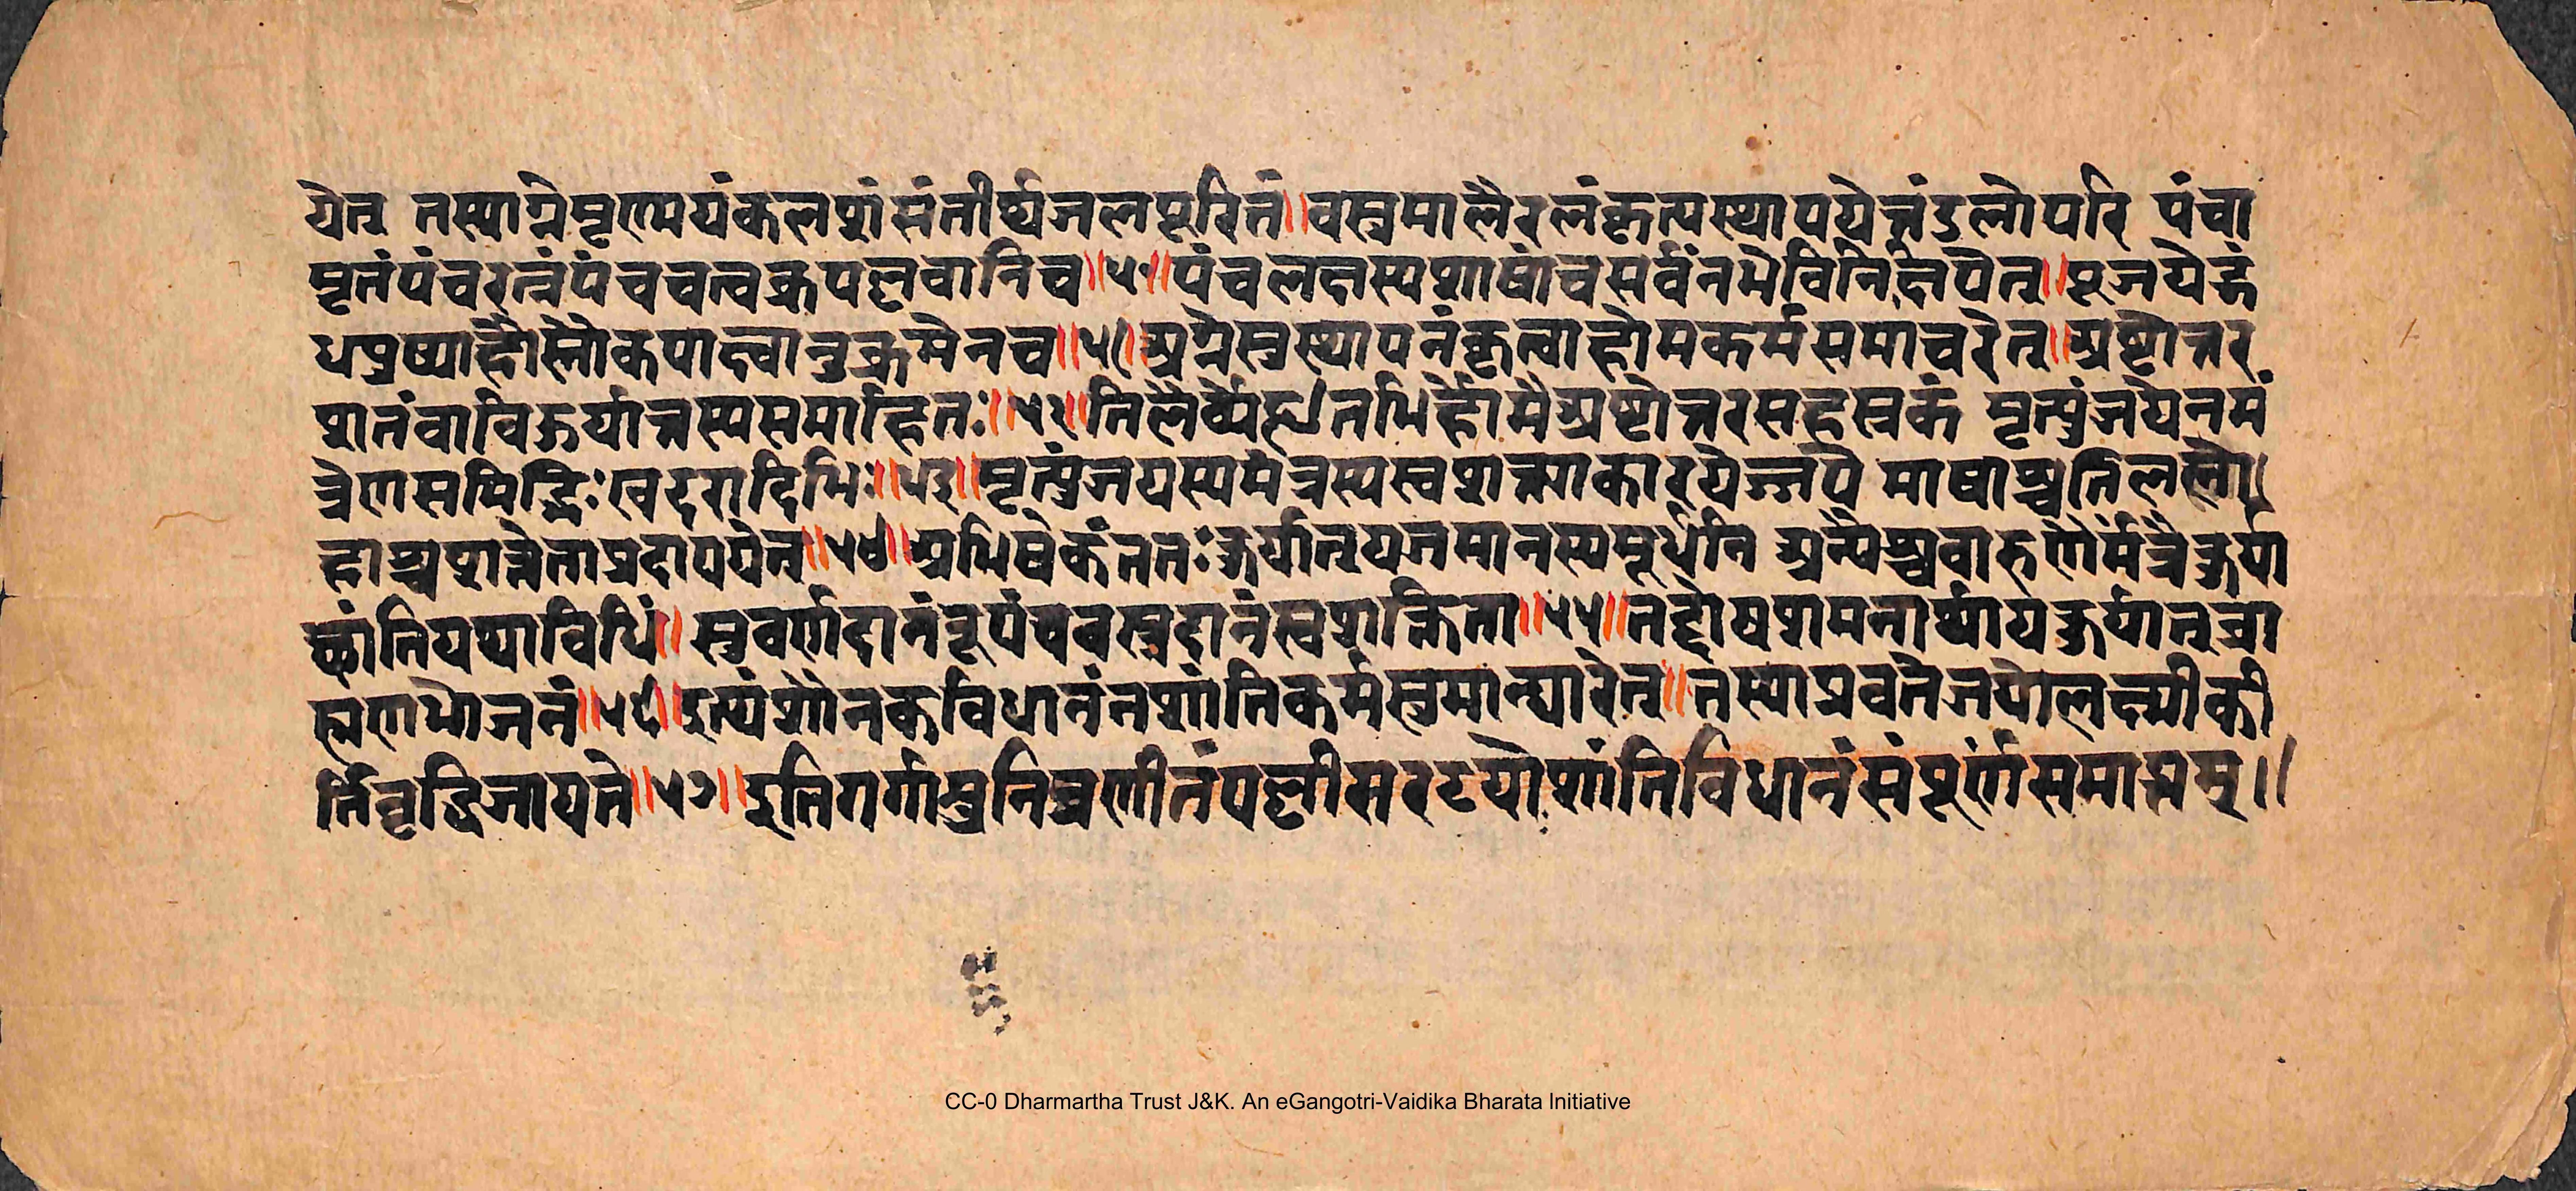 येत् तस्याग्रेमृण्मयंकलशंसंतीर्थ्यजलपूरितं॥वस्त्रमालैरलंकृत्यस्थापयेत्तंडुलोपरि पंचा
मृतंपंचरत्नंपंचचत्वक्रपल्लवानिच॥५०॥पंचलक्षस्यशाषांचसर्वंनमेविनिर्क्षिपेत्॥पूजयेद्गं
धपुष्पाद्यैर्लोकपालानुक्रमेनच॥५१॥अग्नेस्तुस्थापनंकृत्वाहोमकर्मसमाचरेत्॥अष्टोत्तर
शतंवाविकुर्यात्तस्यसमाहितः॥५२॥तिलैर्व्यहृतिभिर्होमैअष्टोत्तरसहस्रकं मृत्युंजयेनमं
त्रेणसमिद्भिःखदरादिभिः॥५३॥मृत्युंजयस्यमंत्रस्यस्वशक्त्याकारयेज्जपे माषाश्चतिललो
हाश्चशक्तेताप्रदापयेत॥५४॥अभिषेकंततःकुर्यात्यजमानस्यमूर्धनि अन्यैश्चवारुणैर्मंत्रैकुर्या
छांतियथाविधिं॥सुवर्णदानंरूपंचवस्त्रदानंस्वशक्तिता॥५५॥तद्दोषशमनार्थायकुर्यात्ब्रा
ह्मणभोजनं॥५६॥इत्थंशौनकविधानंनशांतिकर्मस्तमान्चारेत्॥तस्याप्रवतेजयोलक्ष्मीकी
र्तिवृद्धिजायते॥५७॥इतिगर्गमुनिप्रणीतंपल्लीसरटयोःशांतिविधानंसंपूर्णंसमाप्तम्।।
CC-0 Dharmartha Trust J&K. An eGangotri-Vaidika Bharata Initiative